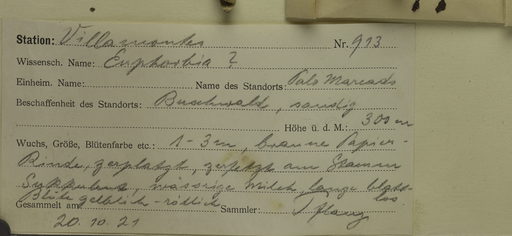 Station: Villamontes Nr. 913
Wissensch. Name: Euphorbia ?
Einheim. Name: Name des Standorts: Palo Marcado
Beschaffenheit des Standorts: Buschwald, sandig
Höhe ü. d. M.: 300 m
Wuchs, Größe, Blütenfarbe etc.: 1-3 m, braune Papier-
Rinde, zerplatzt, zerfetzt am Stamm
Sukkulent, wässrige Milch, lange blatt-
los.
Blüte gelblich-rötlich
Gesammelt am: Sammler: Pflanz
20.10.21